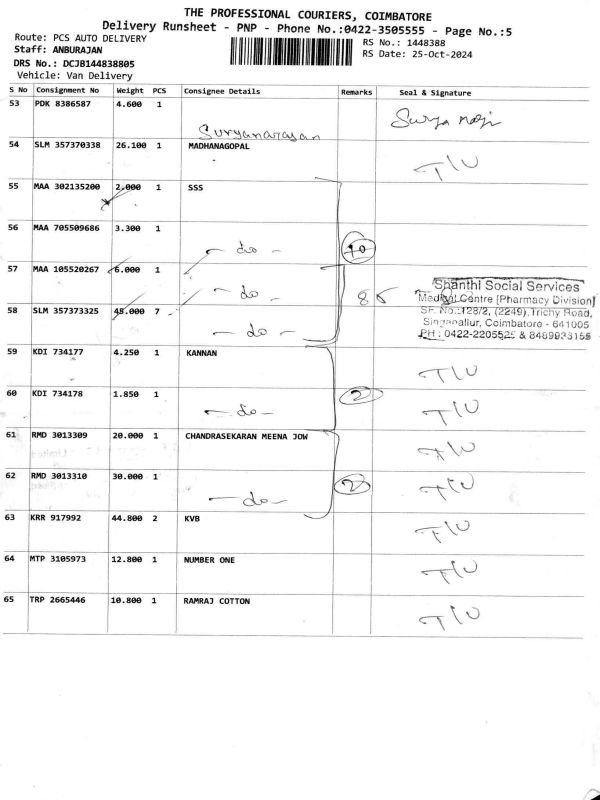 THE PROFESSIONAL COURIERS, COIMBATORE
Delivery Runsheet - PNP - Phone No.:0422-3505555 - Page No.:5
Route: PCS AUTO DELIVERY
RS No.: 1448388
Staff: ANBURAJAN
RS Date: 25-Oct-2024
DRS No.: DCJB144838805
Vehicle: Van Delivery
S No Consignment No Weight PCS Consignee Details Remarks Seal & Signature
53 PDK 8386587 4.600 1
Suryanarayan
54 SLM 357370338 26.100 1 MADHANAGOPAL T/U
55 MAA 302135200 2.000 1 SSS
56 MAA 705509686 3.300 1
- do - 10
57 MAA 105520267 6.000 1
- do -
Shanthi Social Services
Medical Centre [Pharmacy Division]
58 SLM 357373325 45.000 7
SF. No.:128/2, (2249), Trichy Road,
- do -
Singanallur, Coimbatore - 641005
PH : 0422-2205525 & 8489933155
59 KDI 734177 4.250 1 KANNAN T/U
60 KDI 734178 1.850 1
- do - 2 T/U
61 RMD 3013309 20.000 1 CHANDRASEKARAN MEENA JOW T/U
62 RMD 3013310 30.000 1
- do - 2 T/U
63 KRR 917992 44.800 2 KVB T/U
64 MTP 3105973 12.800 1 NUMBER ONE T/U
65 TRP 2665446 10.800 1 RAMRAJ COTTON T/U